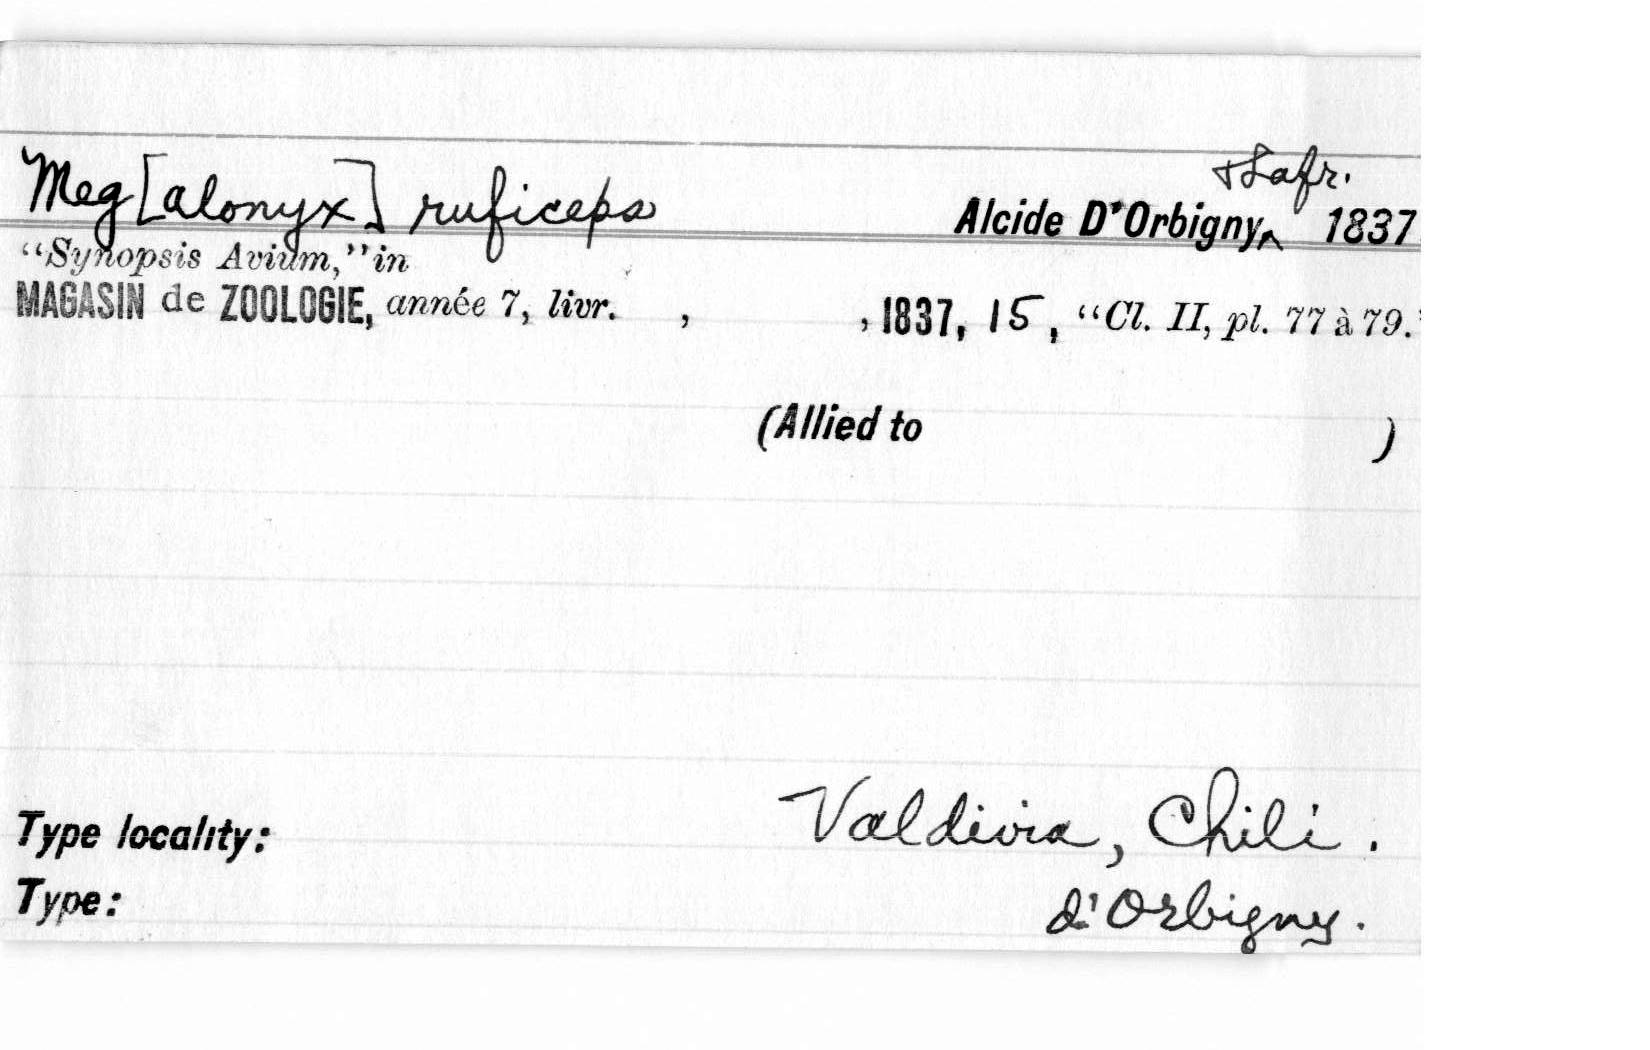 Meg[alonyx] ruficeps Alcide D'Orbigny ‸ + Lafr. 1837
“Synopsis Avium,” in
MAGASIN de ZOOLOGIE, année 7, livr. , , 1837, 15, “Cl. II, pl. 77 à 79.”
(Allied to )
Type locality: Valdivia, Chili.
Type: d'Orbigny.